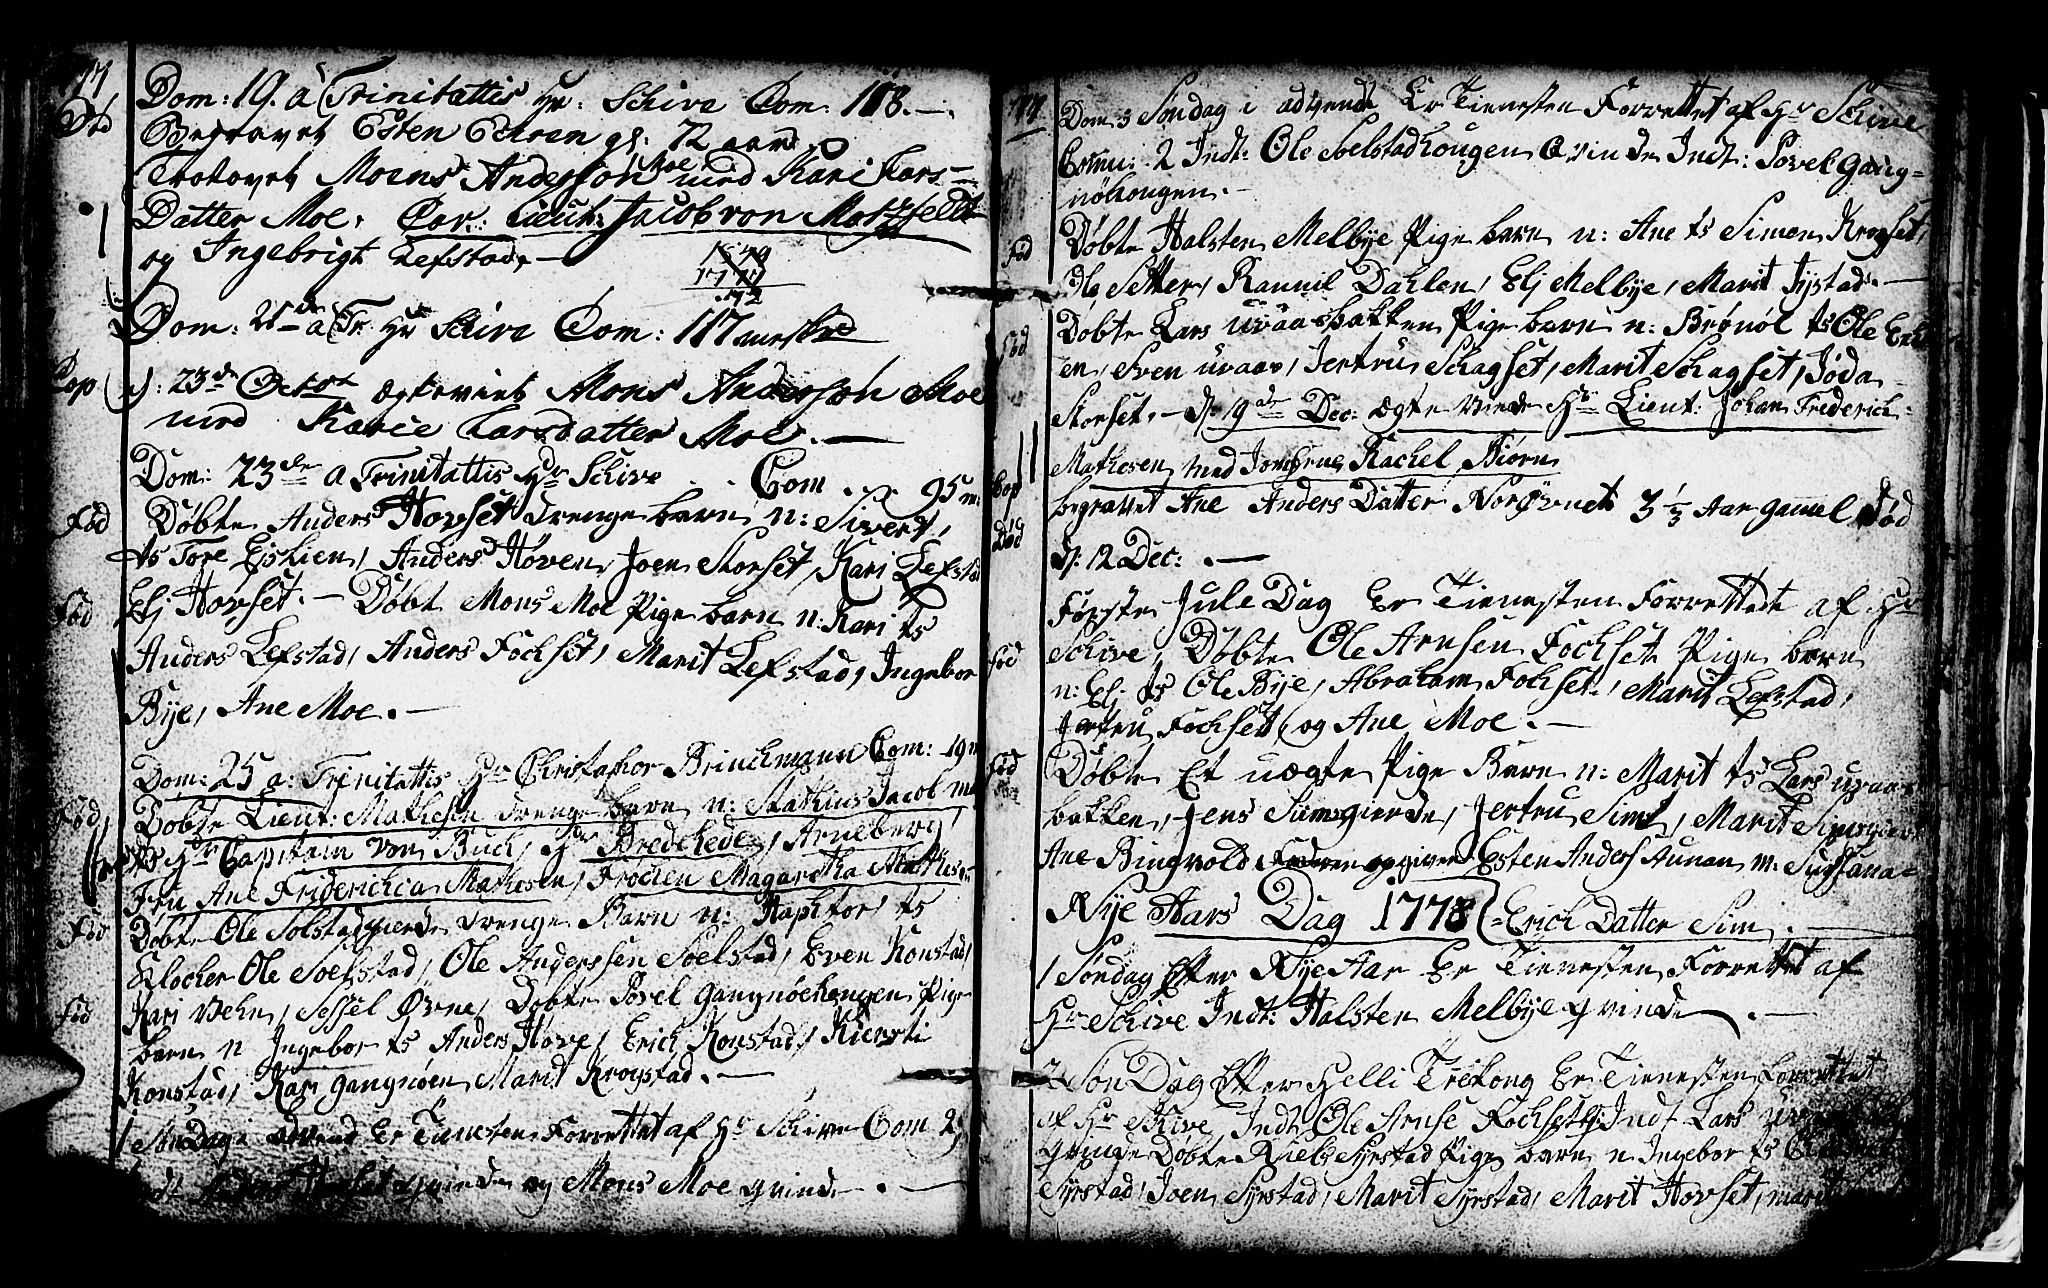 77
Død
Dom: 19. a Trinitattis Hr: Schive Com: 118. —
Begravet Esten Echren gl: 72 aar
Trolovet Moens Anderssøn Moe med Kari Lars-
Datter Moe, Cav: Lieut: Jacob von Motzfeldt
og Ingebrigt Lefstad, —
Dom: 21de a Tr: Hr Schive Com: 117 mesche
Cop d: 23de Octobr ægteviet Mons Anderssøn Moe
med Karie Larsdatter Moe. —
Dom: 23de a Trinitattis Hr Schive Com 95 m:
Fød Døbte Anders Hovset Drenge barn n: Sivert,
ts Tore Eskien, Anders Hoven, Joen Storset, Kari Lefstad
Elj Hovset. —
Fød Døbt Mons Moe Pige barn n: Kari ts
Anders Lefstad, Anders Fochset, Marit Lefstad, Ingebor
Bye, Ane Moe. —
Dom: 25 a: Trinitattis Hr Christopher Brinchmann Com: 19 m
Fød Døbte Lieut: Mathesen Drenge barn n: Mathius Jacob
ts Hr Capitain von Buch, Hr Bredehede, Arneberg,
Fru Ane Friderichca Mathesen, Frøchen Magaretha Mathesen
Fød Døbte Ole Solstadgierde Drenge Barn n: ts
Klocher Ole Soelstad, Ole Anderssen Soelstad, Even Konstad,
Fød Kari Vehn, Sessel Øvne, Døbte Povel Gangnøehougen Pige
barn n Ingebor ts Anders Hove, Erich Konstad, Kiersti
Konstad, Kari Gangnøen, Marit Krogstad. —
1 Søndag i advend Er Tienesten Forrettet af Hr Schive Com 2,
Hovset qvinde og Mons Moe qvinde. —
77
Dom 3 Søndag i advende Er Tienesten Forrettet af Hr Schive
Comu: 2 Indt: Ole Soelstadhougen Qvinde Indt: Povel Gang-
nøhougen. —
Fød Døbte Halsten Melbye Pige barn n: Ane ts Simon Krogset,
Ole Setter, Rannil Dahlen, Elj Melbye, Marit Syrstad. —
Fød Døbte Lars uvaasbakken Pige barn n: Brønøl ts Ole
en, Sven uvaas, Jertru Schagset, Marit Schagset, Jøda
Storset. — d: 19de Dec: ægte viede Hr Lieut: Johan Frederich
Cop Mathesen med Jomfrue Rachel Biørn
Død begravet Ane Anders Datter 3 1/3 Aar gamel død
d: 12 Dec: —
Første Jule Dag Er Tienesten Forrettede af Hr
Fød Schive, Døbte Ole Arnsen Fochset Pige barn
n: Elj ts Ole Bye, Abraham Fochset, Marit Lefstad,
Jertru Fochset, og Ane Moe. —
Fød Døbte Et uægte Pige Barn n: Marit ts Lars uvaas-
bakken, Jens Simsgierde, Jertru Simt, Marit Simsgierde
Ane Bingvold Faderen opgiven Esten Anders Aunan m: Sussana
Nye Aars Dag 1778 = Erich Datter Sim. —
1 Søndag Efter Nye Aar Er Tienesten Forrettet af
Hr Schive Indt: Halsten Melbye qvinde. —
2 Søn Dag Efter Helli Trekong Er Tienesten Forrettet
af Hr Skive, Indt Ole Arnse Fochset, Indt Lars
qvinde Døbte Niels Syrstad Pige barn n Ingebor ts
Syrstad, Joen Syrstad, Marit Syrstad, Marit Hovset,